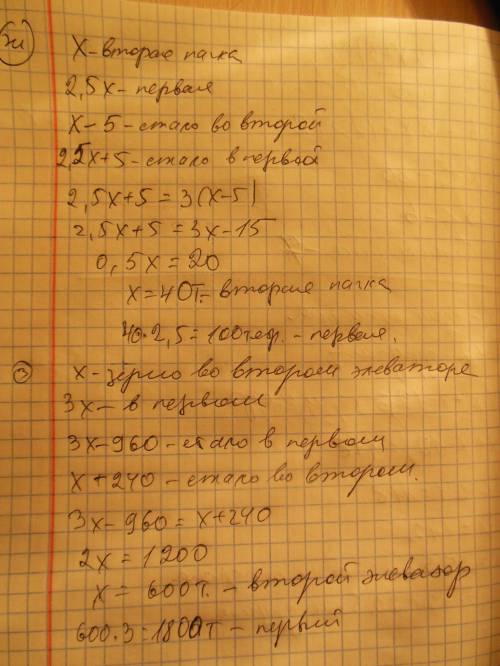 ж)
х-вторая пачка
2,5х- первая
х-5-стало во второй
2,5х+5-стало в первой
2,5х+5=3(х-5)
2,5х+5=3х-15
0,5х=20
х=40т.-вторая пачка
40·2,5=100тетр.-первая.
з) х-зерно во втором элеваторе
3х- в первом
3х-960-стало в первом
х+240-стало во втором.
3х-960=х+240
2х=1200
х=600т.-второй элеватор
600·3=1800т-первый